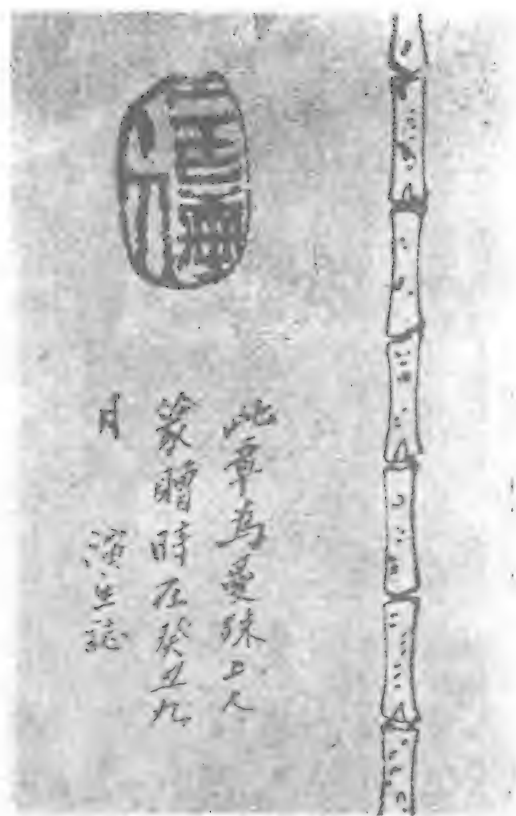 此章為曼殊上人
篆贈時在癸丑九
月 演生誌